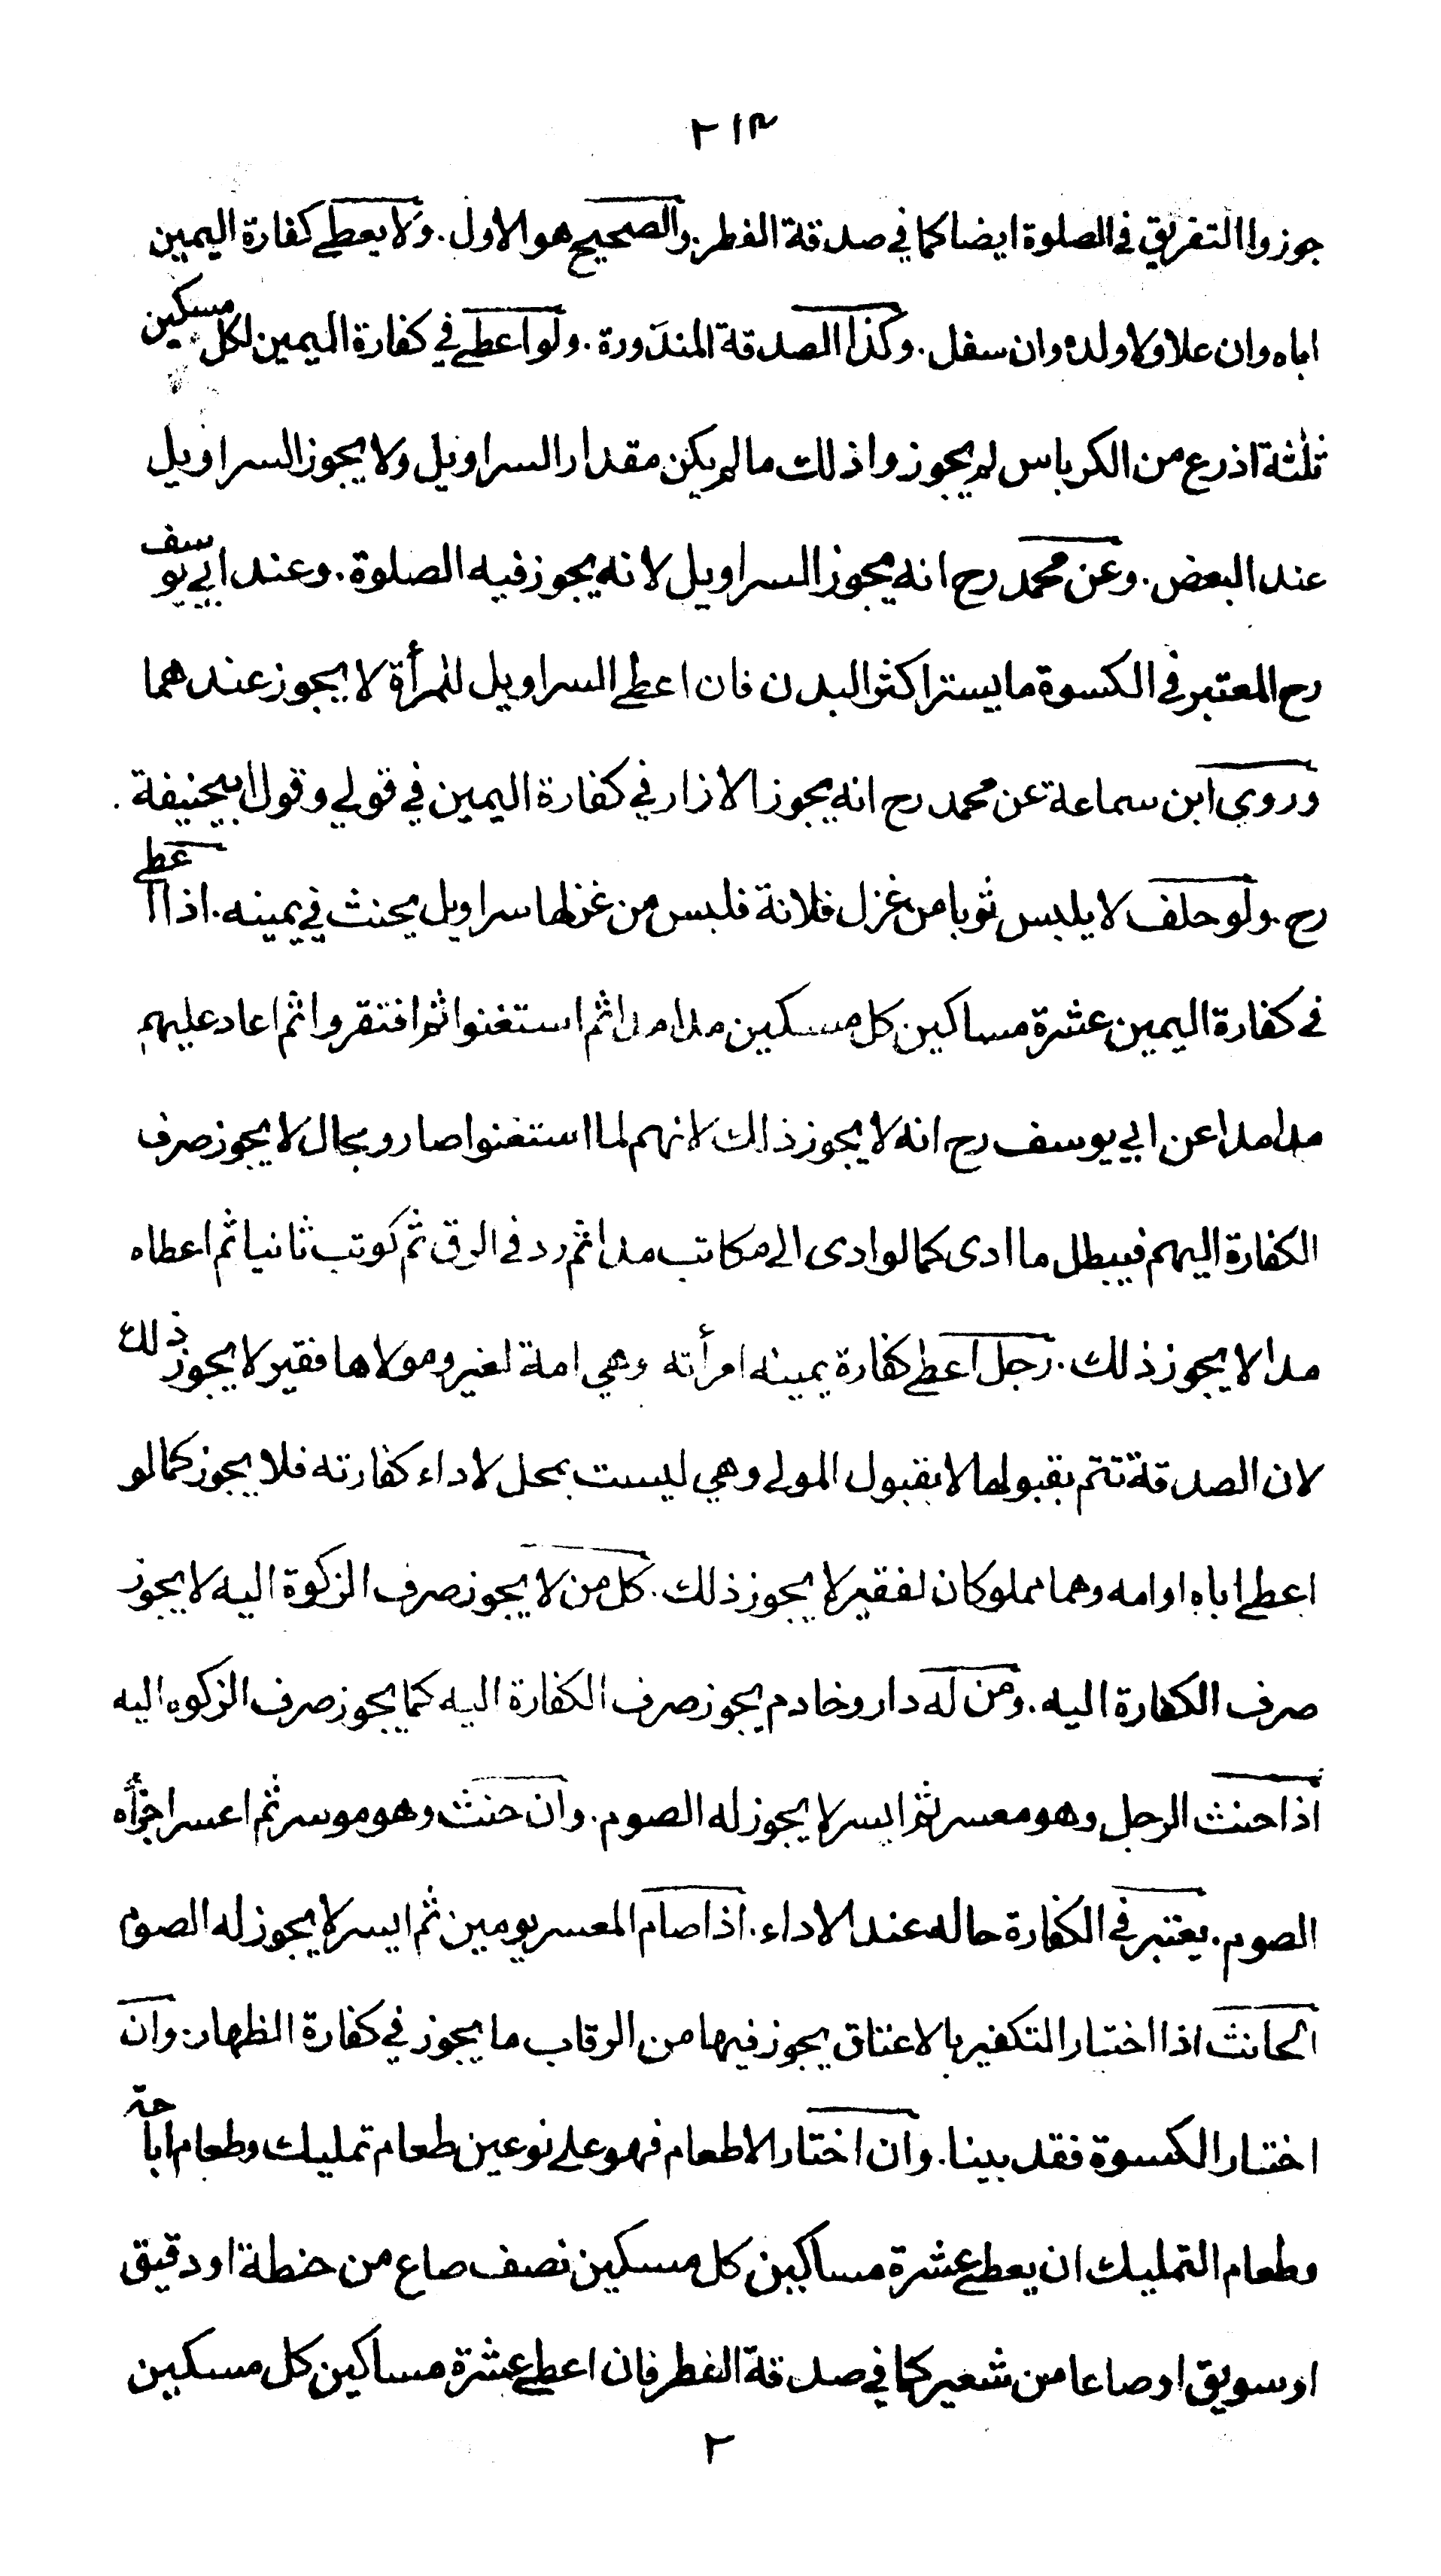 ٢١٣
جوزوا التفريق في الصلوة ايضا كما في صدقة الفطر. والصحيح هو الاول. ولا يعطى كفارة اليمين
اباه وان علا ولا ولده وان سفل. وكذا الصدقة المنذورة. ولو اعطى في كفارة اليمين لكل مسكين
ثلثة اذرع من الكرباس لم يجوز واذلك مالم يكن مقدار السراويل ولا يجوز السراويل
عند البعض. وعن محمد رح انه يجوز السراويل لانه يجوز فيه الصلوة. وعند ابي يوسف
رح المعتبر في الكسوة ما يستر اكثر البدن فان اعطى السراويل للمرأة لا يجوز عندهما
وروى ابن سماعة عن محمد رح انه يجوز الازار في كفارة اليمين في قولي وقول ابيحنيفة
رح. ولو حلف لا يلبس ثوبا من غزل فلانة فلبس من غزلها سراويل يحنث في يمينه. اذا اعطى
في كفارة اليمين عشرة مساكين كل مسكين مدا مدا ثم استغنوا ثم افتقروا ثم اعاد عليهم
مدا مدا عن ابي يوسف رح انه لا يجوز ذلك لانهم لما استغنوا صارو بحال لا يجوز صرف
الكفارة اليهم فيبطل ما ادى كما لو ادى الى مكاتب مدا ثم رد في الرق ثم كوتب ثانيا ثم اعطاه
مدا لا يجوز ذلك. رجل اعطى كفارة يمينه امرأته وهي امة لغير ومولاها فقير لا يجوز ذلك
لان الصدقة تتم بقبولها لا بقبول المولى وهي ليست بمحل لاداء كفارته فلا يجوز كما لو
اعطى اباه او امه وهما مملوكان لفقير لا يجوز ذلك. كل من لا يجوز صرف الزكوة اليه لا يجوز
صرف الكفارة اليه. ومن له دار وخادم يجوز صرف الكفارة اليه كما يجوز صرف الزكوه اليه
اذا حنث الرجل وهو معسر ثم ايسر لا يجوز له الصوم. وان حنث وهو موسر ثم اعسر اجزأه
الصوم. يعتبر في الكفارة حاله عند الاداء. اذا صام المعسر يومين ثم ايسر لا يجوز له الصوم
الحانث اذا اختار التكفير بالاعتاق يجوز فيها من الرقاب ما يجوز في كفارة الظهار. وان
اختار الكسوة فقد بينا. وان اختار الاطعام فهو على نوعين طعام تمليك وطعام اباحة
وطعام التمليك ان يعطى عشرة مساكين كل مسكين نصف صاع من حنطة او دقيق
او سويق او صاعا من شعير كما في صدقة الفطر فان اعطى عشرة مساكين كل مسكين
٢